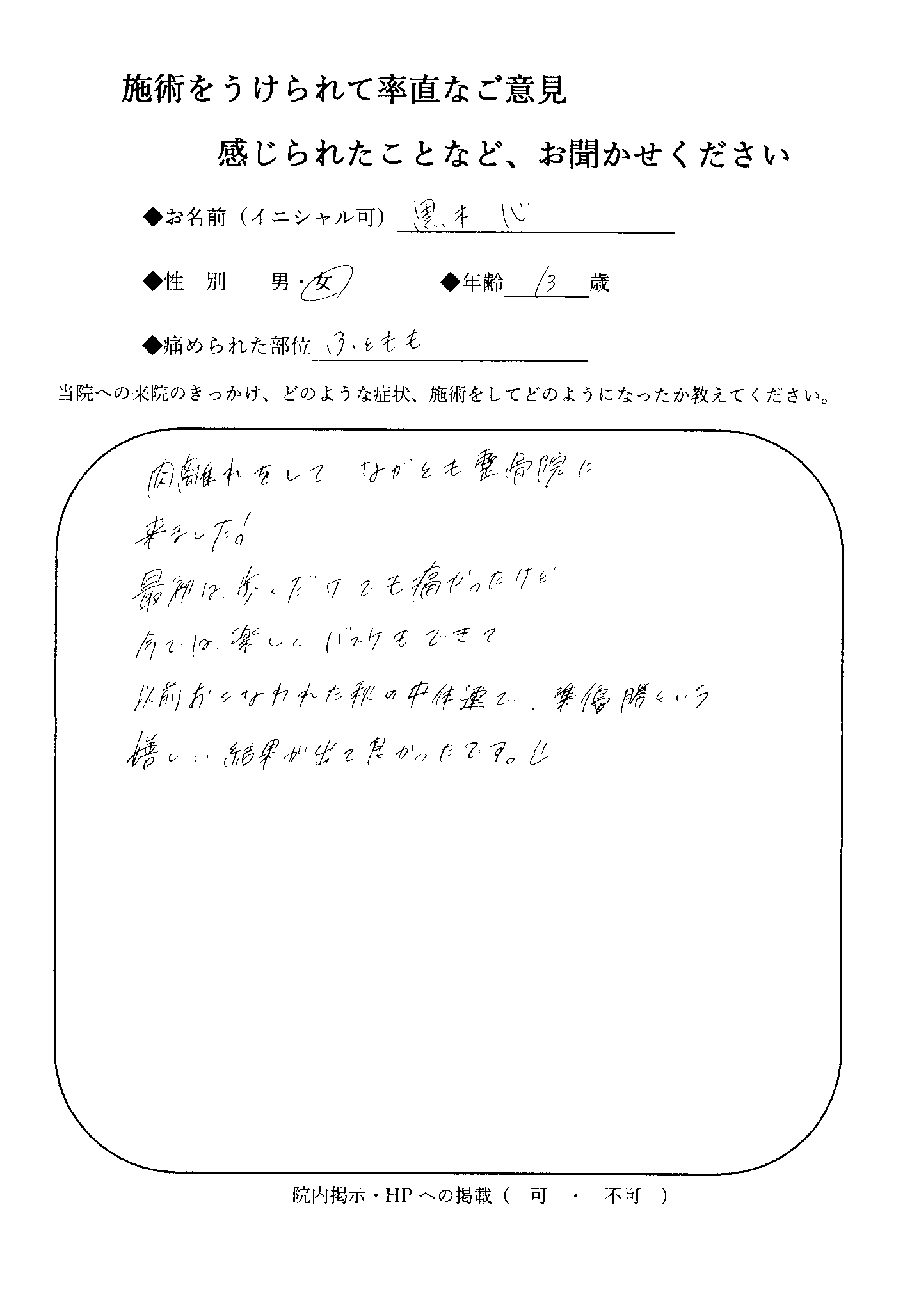 施術をうけられて率直なご意見
感じられたことなど、お聞かせください
◆お名前（イニシャル可） 黒木 心
◆性 別 男・女 ◆年齢 13 歳
◆痛められた部位 ふともも
当院への来院のきっかけ、どのような症状、施術をしてどのようになったか教えてください。
肉離れをして ながとも整骨院に
来ました!
最初は、歩くだけでも痛かったけど
今では、楽しくバスケもできて
以前おこなわれた秋の中体連で、準優勝という
嬉しい結果が出て良かったです。
院内掲示・HP への掲載（ 可 ・ 不可 ）